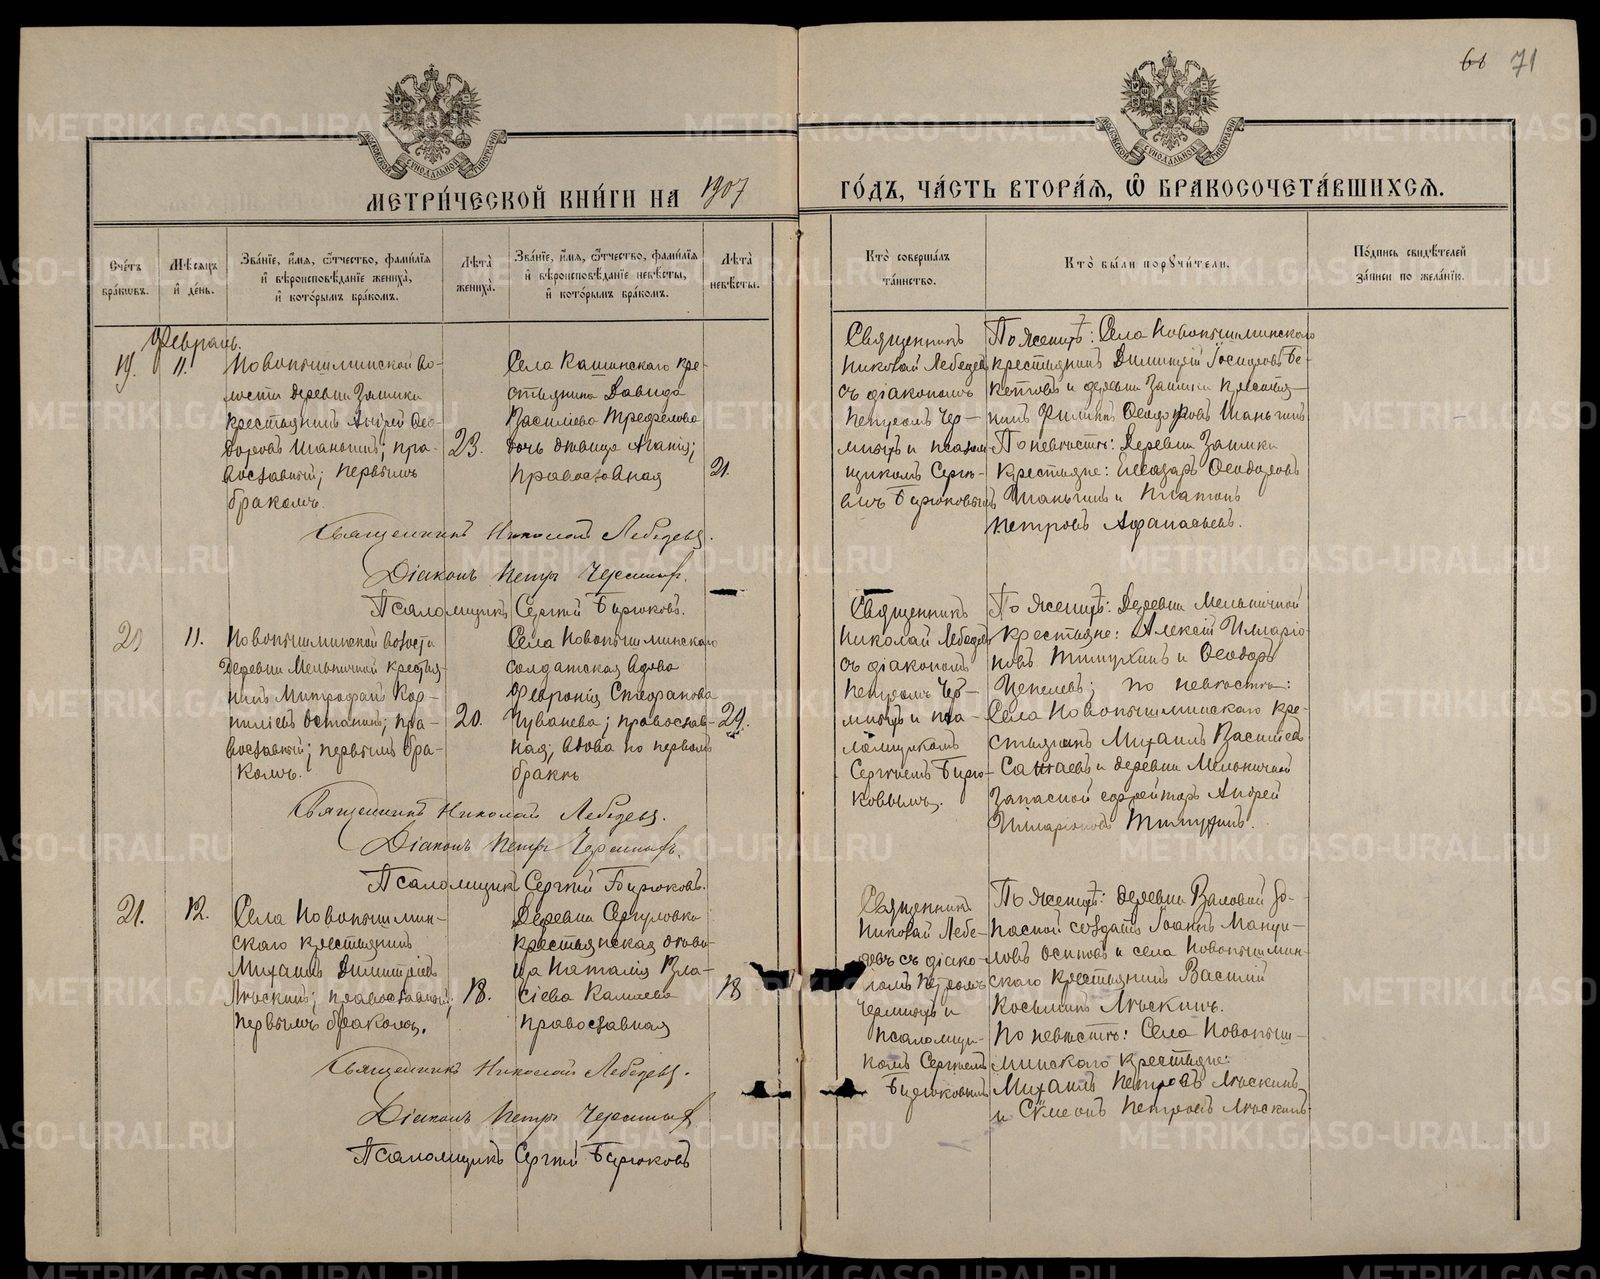 68 71
МЕТРИ́ЧЕСКОЙ КНИ́ГИ НА 1907
ГО́ДЪ, ЧА́СТЬ ВТОРА́Ѧ, Ѿ БРАКОСОЧЕТА́ВШИХСѦ.
Сче́тъ бра́кѡвъ.
Мѣ́сѧцъ и҆ де́нь.
Зва́нїе, и҆́мѧ, ѻ҆́тчество, фами́лїѧ
и҆ вѣроисповѣ́данїе жениха̀,
и҆ кото́рымъ бра́комъ.
Лѣта̀ жениха̀.
Зва́нїе, и҆́мѧ, ѻ҆́тчество, фами́лїѧ
и҆ вѣроисповѣ́данїе невѣ́сты,
и҆ кото́рымъ бра́комъ.
Лѣта̀ невѣ́сты.
Кто̀ соверша́лъ
та́инство.
Кто̀ бы́ли порꙋчи́тели.
По́дпись свидѣ́телей
за́писи по жела́нїю.
Февраль.
19. 11.
Новопышминской во-
лости деревни Заимки
крестьянинъ Андрей Ѳео-
доровъ Шаньгинъ; пра-
вославный; первымъ
бракомъ.
23.
Села Кашинскаго кре-
стьянина Давида
Василіева Трефелова
дочь дѣвица Агапія;
православная
21.
Священникъ
Николай Лебедевъ
съ діакономъ
Петромъ Чер-
мныхъ и псалом-
щикомъ Сергі-
емъ Бирюковымъ
По женихѣ: Села Новопышминскаго
крестьянинъ Димитрій
и деревни Заимки крестья-
нинъ Филиппъ Ѳеодоровъ Шаньгинъ
По невѣстѣ: Деревни Заимки
крестьяне: Елеазаръ Ѳеодоровъ
Шаньгинъ и Платонъ
Петровъ Аѳанасьевъ.
Священникъ Николай Лебедевъ.
Діаконъ Петръ Чермныхъ.
Псаломщикъ Сергій Бирюковъ.
20 11.
Новопышминской волости
деревни Мельничной крестья-
нинъ Митрофанъ Кор-
ниліевъ Останинъ; пра-
вославный; первымъ бра-
комъ.
20.
Села Новопышминскаго
солдатская вдова
Февронія Стефанова
Чуваева; православ-
ная; вдова по первомъ
бракѣ
29.
Священникъ
Николай Лебедевъ
съ діакономъ
Петромъ Чер-
мныхъ и пса-
ломщикомъ
Сергіемъ Бирю-
ковымъ.
По женихѣ: Деревни Мельничной
крестьяне: Алексій Илларіо-
новъ и Ѳеодоръ
Пепелевъ; по невѣстѣ:
Села Новопышминскаго кре-
стьянинъ Михаилъ Василіевъ
и деревни Мельничной
Запасной ефрейторъ Андрей
Илларіоновъ
Священникъ Николай Лебедевъ.
Діаконъ Петръ Чермныхъ.
Псаломщикъ Сергій Бирюковъ.
21. 12.
Села Новопышмин-
скаго крестьянинъ
Михаилъ Димитріевъ
Лѣскинъ; православный;
первымъ бракомъ.
18.
Деревни Сергуловки
крестьянская дѣви-
ца Наталія Вла-
сіева Камаева
православная
18
Священникъ
Николай Лебе-
девъ съ діако-
номъ Петромъ
Чермныхъ и
псаломщи-
комъ Сергіемъ
Бирюковымъ
По женихѣ: деревни Валовой за-
пасной солдатъ Іоаннъ Мануи-
ловъ Осиповъ и села Новопышмин-
скаго крестьянинъ Василій
Косьминъ Лѣскинъ.
По невѣстѣ: Села Новопыш-
минскаго крестьяне:
Михаилъ Петровъ Лѣскинъ
и Сѵмеонъ Петровъ Лѣскинъ.
Священникъ Николай Лебедевъ.
Діаконъ Петръ Чермныхъ
Псаломщикъ Сергій Бирюковъ
METRIKI.GASO-URAL.RU